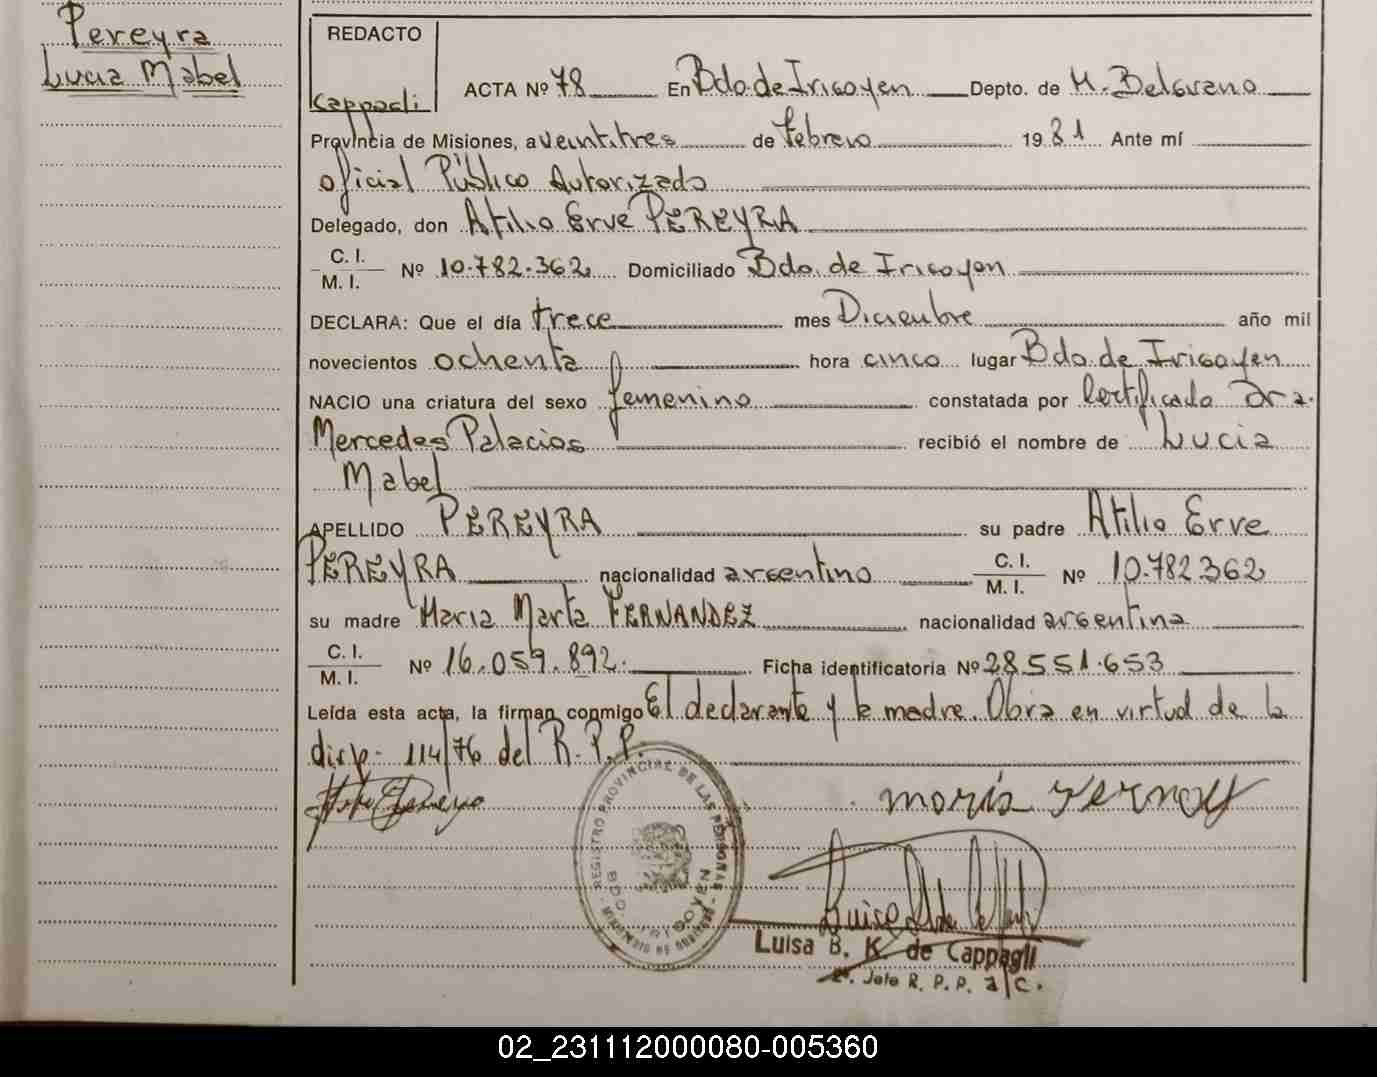 Pereyra
Lucia Mabel
REDACTO
Cappagli
ACTA Nº 78 En Bdo de Irigoyen Depto. de M. Belgrano
Provincia de Misiones, a veintitres de Febrero 1981 Ante mí
oficial Público Autorizado
Delegado, don Atilio Erve PEREYRA
C. I.
M. I. Nº 10.782.362 Domiciliado Bdo. de Irigoyen
DECLARA: Que el día trece mes Diciembre año mil
novecientos ochenta hora cinco lugar Bdo. de Irigoyen
NACIO una criatura del sexo femenino constatada por Certificado Dra.
Mercedes Palacios recibió el nombre de Lucia
Mabel
APELLIDO PEREYRA su padre Atilio Erve
PEREYRA nacionalidad argentino C. I.
M. I. Nº 10.782.362
su madre Maria Marta FERNANDEZ nacionalidad argentina
C. I.
M. I. Nº 16.059.892. Ficha identificatoria Nº 28.551.653
Leída esta acta, la firman conmigo El declarante y la madre. Obra en virtud de la
disp. 114/76 del R.P.P.
REGISTRO PROVINCIAL DE LAS PERSONAS
BDO. IRIGOYEN
Luisa B. K. de Cappagli
2º. Jefe R. P. P. a/c.
02_231112000080-005360